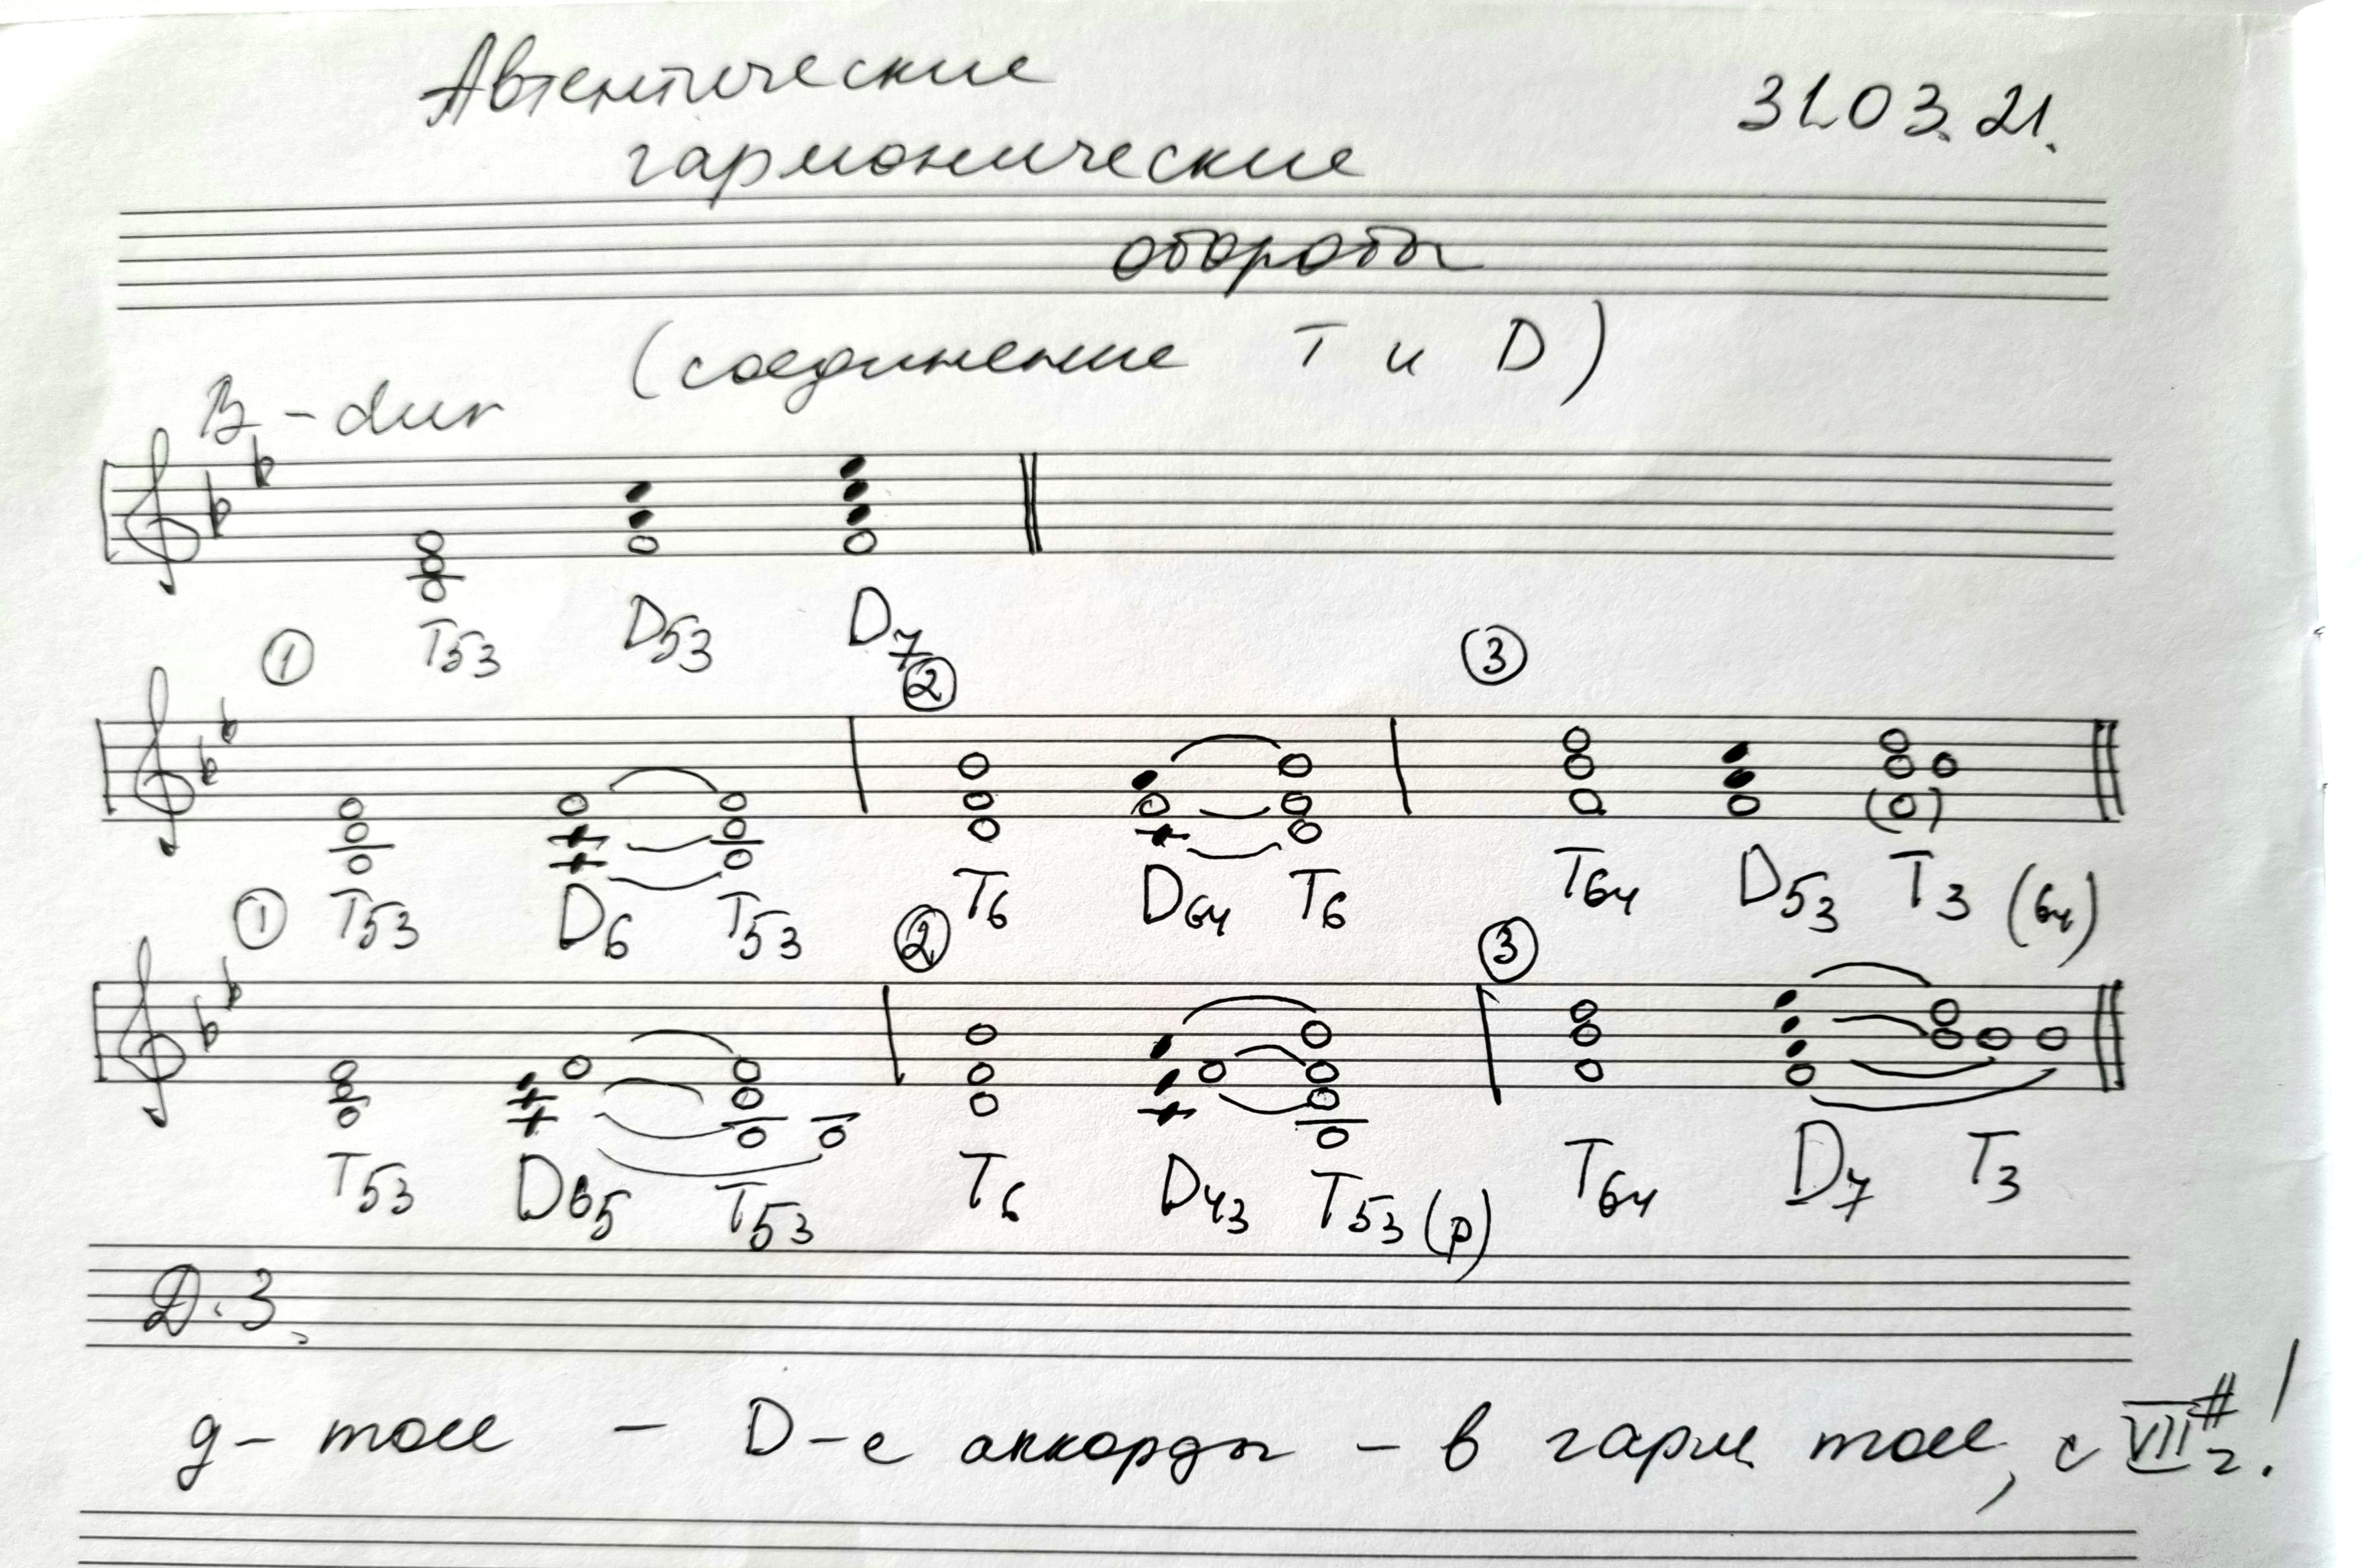 Автентические
31.03.21.
гармонические
обороты
(соединение T и D)
B-dur
T53 D53 D7
① ② ③
T53 D6 T53 T6 D64 T6 T64 D53 T3 (64)
① ② ③
T53 D65 T53 T6 D43 T53 (р) T64 D7 T3
Д.З.
g-moll - D-е аккорды - в гарм moll, с VII#г!